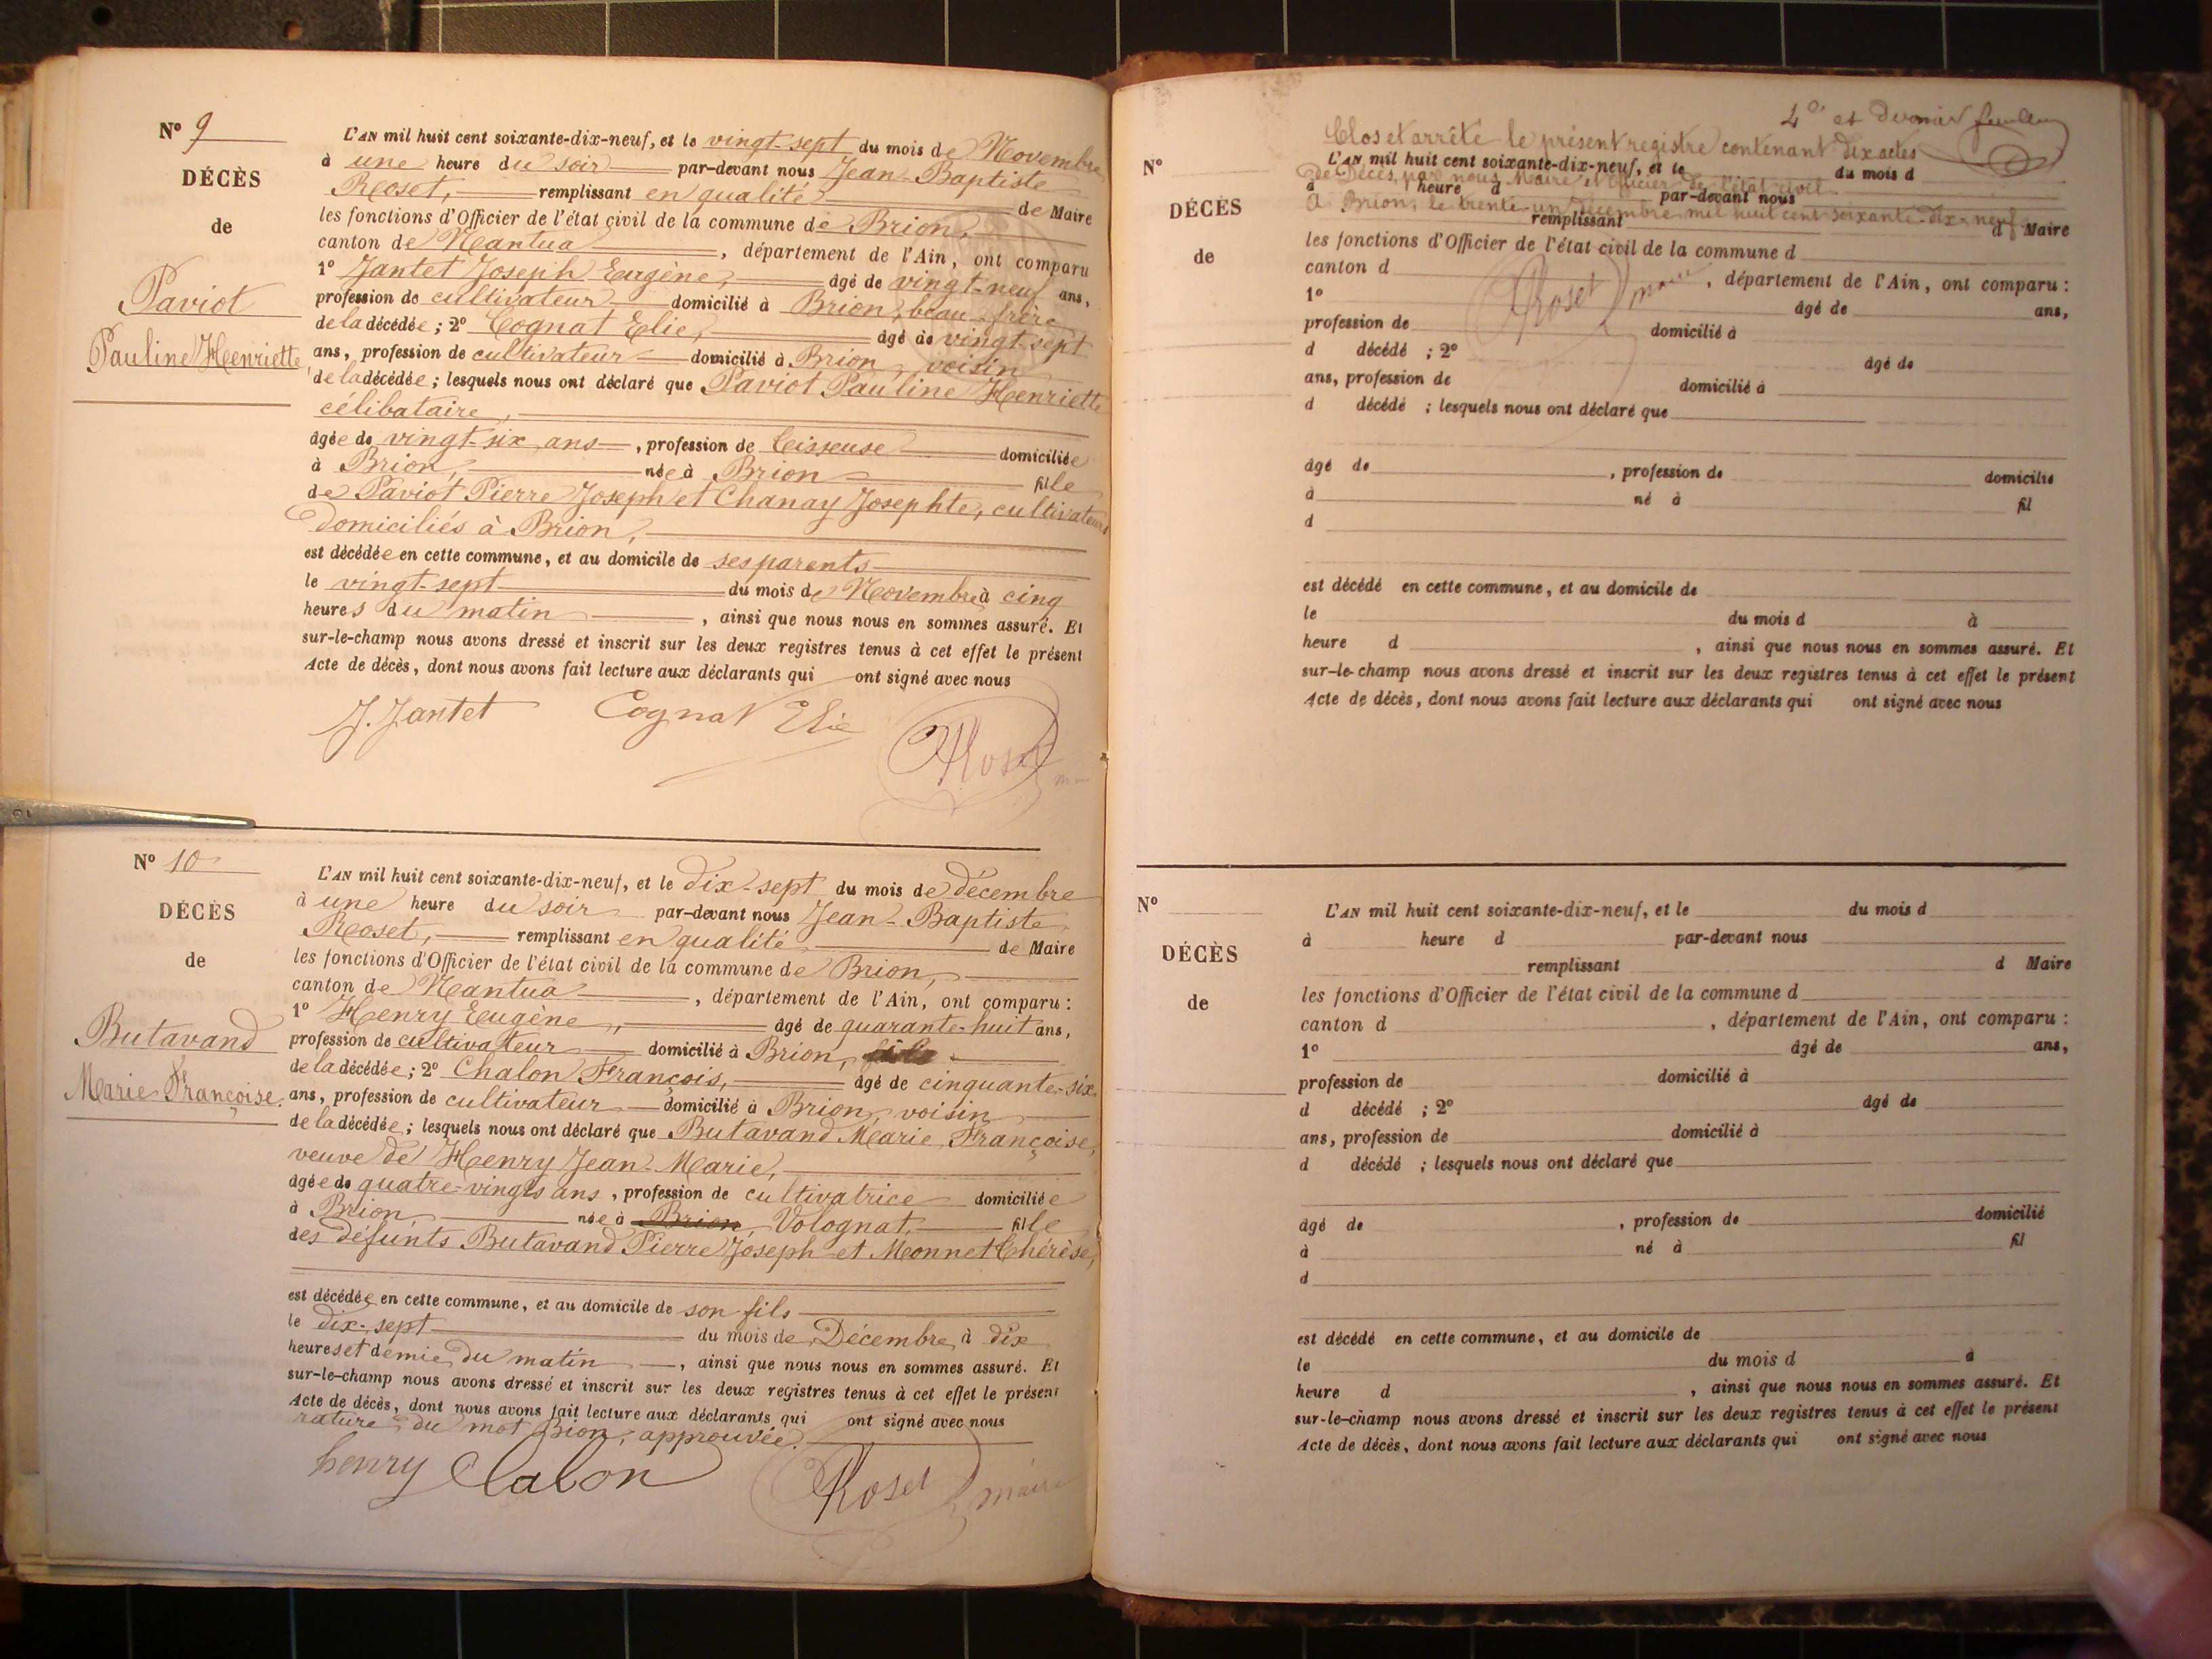 N° 9
DÉCÈS
de
Paviot
Pauline Henriette
L'AN mil huit cent soixante-dix-neuf, et le vingt-sept du mois de Novembre
à une heure du soir par-devant nous Jean-Baptiste
Roset, remplissant en qualité de Maire
les fonctions d'Officier de l'état civil de la commune de Brion,
canton de Nantua, département de l'Ain, ont comparu
1° Jantet Joseph Eugène, âgé de vingt-neuf ans,
profession de cultivateur domicilié à Brion, beau-frère
de la décédée ; 2° Cognat Elie, âgé de vingt-sept
ans, profession de cultivateur domicilié à Brion, voisin
de la décédée ; lesquels nous ont déclaré que Paviot Pauline Henriette
célibataire,
âgée de vingt-six ans, profession de tisseuse domiciliée
à Brion, née à Brion fille
de Paviot Pierre Joseph et Chanay Josephte, cultivateurs
domiciliés à Brion,
est décédée en cette commune, et au domicile de ses parents
le vingt-sept du mois de Novembre à cinq
heures du matin, ainsi que nous nous en sommes assuré. Et
sur-le-champ nous avons dressé et inscrit sur les deux registres tenus à cet effet le présent
Acte de décès, dont nous avons fait lecture aux déclarants qui ont signé avec nous
J. Jantet Cognat Elie Roset
N° 10
DÉCÈS
de
Butavand
Marie Françoise.
L'AN mil huit cent soixante-dix-neuf, et le dix-sept du mois de décembre
à une heure du soir par-devant nous Jean-Baptiste
Roset, remplissant en qualité de Maire
les fonctions d'Officier de l'état civil de la commune de Brion,
canton de Nantua, département de l'Ain, ont comparu :
1° Henry Eugène, âgé de quarante-huit ans,
profession de cultivateur domicilié à Brion,
de la décédée ; 2° Chalon François, âgé de cinquante-six
ans, profession de cultivateur domicilié à Brion, voisin
de la décédée ; lesquels nous ont déclaré que Butavand Marie Françoise,
veuve de Henry Jean-Marie,
âgée de quatre-vingts ans, profession de cultivatrice domiciliée
à Brion née à Brion Volognat, fille
des défunts Butavand Pierre Joseph et Monnet Thérèse,
est décédée en cette commune, et au domicile de son fils
le dix-sept du mois de Décembre à dix
heures et demie du matin, ainsi que nous nous en sommes assuré. Et
sur-le-champ nous avons dressé et inscrit sur les deux registres tenus à cet effet le présent
Acte de décès, dont nous avons fait lecture aux déclarants qui ont signé avec nous
rature du mot Brion, approuvée.
henry Calon Roset maire
4e et dernier feuillet
Clos et arrêté le présent registre contenant dix actes
de Décès, par nous Maire et Officier de l'état civil
A Brion, le trente-un Décembre mil huit cent soixante-dix-neuf
Roset maire
N°
DÉCÈS
de
L'AN mil huit cent soixante-dix-neuf, et le du mois d
à heure d par-devant nous
remplissant d Maire
les fonctions d'Officier de l'état civil de la commune d
canton d , département de l'Ain, ont comparu :
1° âgé de ans,
profession de domicilié à
d décédé ; 2° âgé de
ans, profession de domicilié à
d décédé ; lesquels nous ont déclaré que
âgé de , profession de domicilié
à né à fil
d
est décédé en cette commune, et au domicile de
le du mois d à
heure d , ainsi que nous nous en sommes assuré. Et
sur-le-champ nous avons dressé et inscrit sur les deux registres tenus à cet effet le présent
Acte de décès, dont nous avons fait lecture aux déclarants qui ont signé avec nous
N°
DÉCÈS
de
L'AN mil huit cent soixante-dix-neuf, et le du mois d
à heure d par-devant nous
remplissant d Maire
les fonctions d'Officier de l'état civil de la commune d
canton d , département de l'Ain, ont comparu :
1° âgé de ans,
profession de domicilié à
d décédé ; 2° âgé de
ans, profession de domicilié à
d décédé ; lesquels nous ont déclaré que
âgé de , profession de domicilié
à né à fil
d
est décédé en cette commune, et au domicile de
le du mois d à
heure d , ainsi que nous nous en sommes assuré. Et
sur-le-champ nous avons dressé et inscrit sur les deux registres tenus à cet effet le présent
Acte de décès, dont nous avons fait lecture aux déclarants qui ont signé avec nous